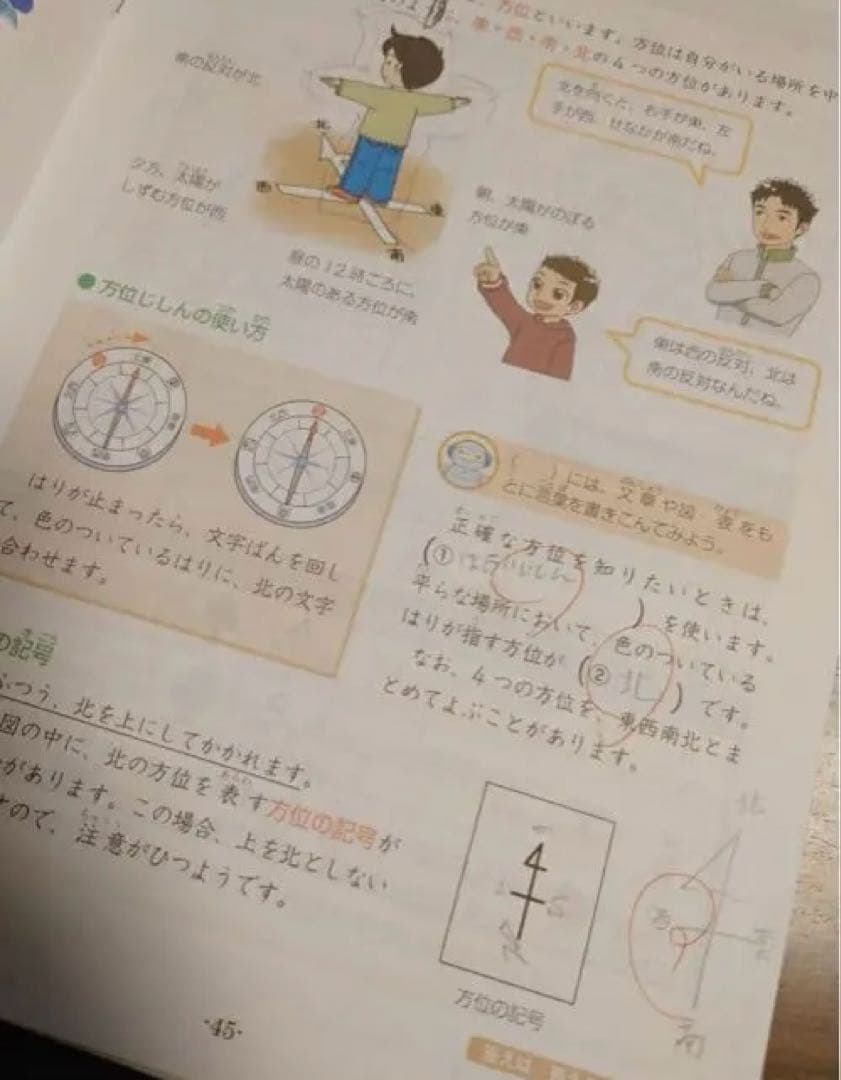 方位といいます。方位は自分がいる場所を中
東・西・南・北の4つの方位があります。
南の反対が北
北を向くと、右手が東、左
手が西、せなかが南だね。
夕方、太陽が
しずむ方位が西
北
西
東
南
朝、太陽がのぼる
方位が東
昼の12時ころに、
太陽のある方位が南
東は西の反対、北は
南の反対なんだね。
●方位じしんの使い方
はりが止まったら、文字ばんを回し
て、色のついているはりに、北の文字
合わせます。
( )には、文章や図 表をも
とに言葉を書きこんでみよう。
正確な方位を知りたいときは、
(① じしん )を使います。
平らな場所において、色のついている
はりが指す方位が(② 北 )です。
なお、4つの方位を、東西南北とま
とめてよぶことがあります。
の記号
ふつう、北を上にしてかかれます。
図の中に、北の方位を表す方位の記号が
があります。この場合、上を北としない
ので、注意がひつようです。
北
西
南
方位の記号
·45·
答えは